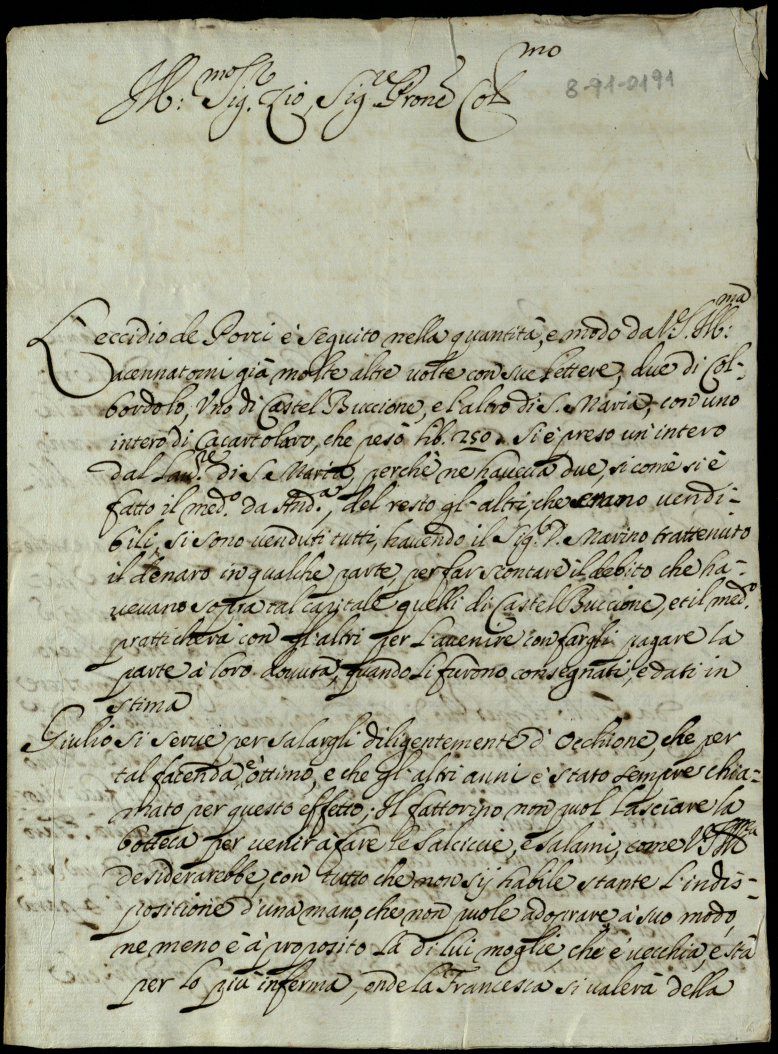 Ill:mo Sig.r Zio, Sig.re Prone Col.mo
8-91-0191
L'eccidio de Porci è seguito nella quantità, e modo da V.S. Ill:ma
acennatomi già molte altre volte con sue lettere, due di Col-
bordolo, Uno di Castel Buccione, e l'altro di S. Maria, con uno
intero di Cacartolaro, che pesò lib. 250. Si è preso un'intero
dal Lau.re di S. Maria, perche ne haveva due, si come si è
fatto il med.o da And.a, del resto gl'altri, che erano vendi-
bili, si sono venduti tutti, havendo il Sig. D. Marino trattenuto
il denaro in qualche parte, per far scontare il debito che ha-
vevano sopra tal capitale quelli di Castel Buccione, et il med.o
pratticherà con gl'altri per l'avenire con fargli pagare la
parte à loro dovuta, quando li furono consegnati, e dati in
stima
Giulio si serve per salargli diligentemente d'Occhione, che per
tal facenda è ottimo, e che gl'altri anni è stato sempre chia-
mato per questo effetto; Il fattorino non vuol lasciare la
botteca per venir a fare le salciccie, e salami, come V.S. Ill.ma
desiderarebbe, con tutto che non sij habile stante l'indis-
positione d'una mano, che non puole adoprare à suo modo,
ne meno è à proposito la di lui moglie, che è vecchia, e stà
per lo più inferma, onde la Francesca si valerà della